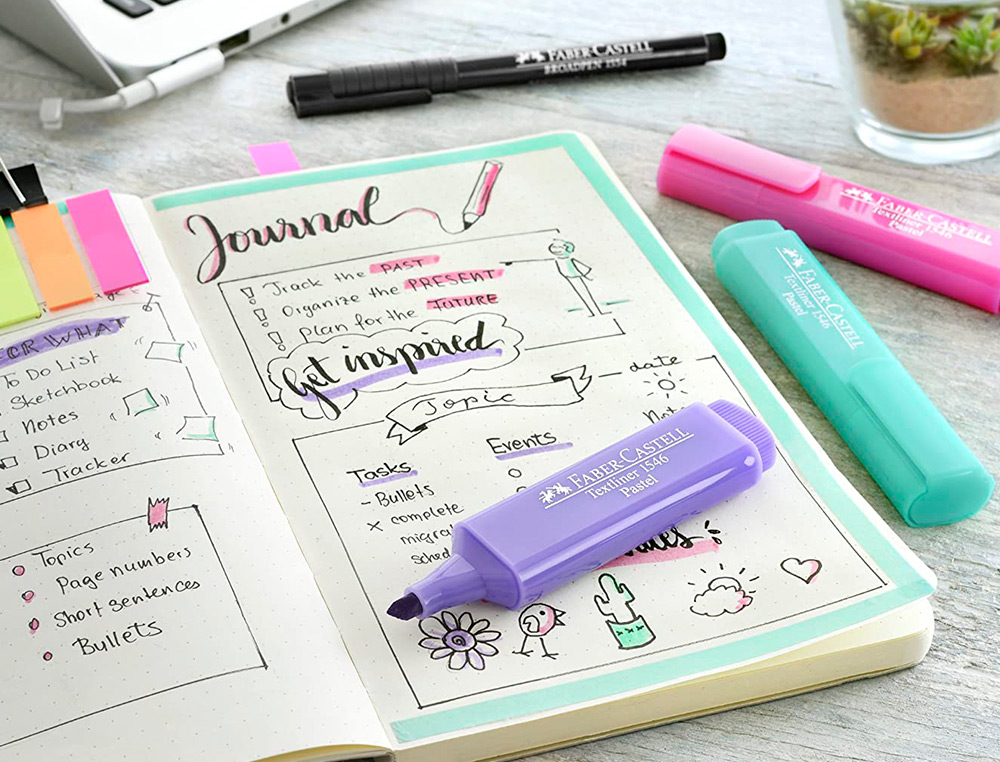 FABER-CASTELL
BROADPEN 1554
FABER-CASTELL
Textliner 1546
Pastel
FABER-CASTELL
Textliner 1546
Pastel
WHAT
To Do List
Sketchbook
Notes
Diary
Tracker
Topics
Page numbers
Short sentences
Bullets
Journal
! Track the PAST
! Organize the PRESENT
! Plan for the FUTURE
Get inspired
Topic
— date
Tasks
Events
- Bullets
x complete
FABER-CASTELL
Textliner 1546
Pastel